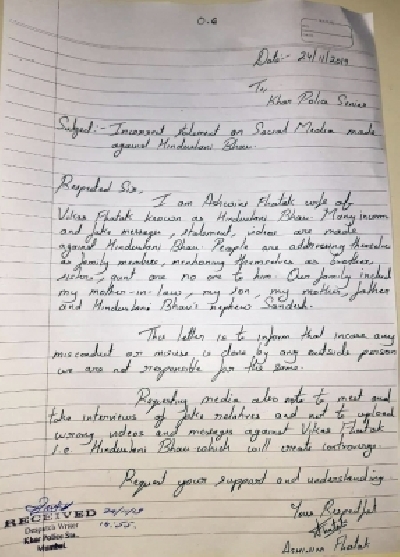 O.G
Date:- 24/11/2019
To,
Khar Police Senior
Subject:- Incorrect statement on Social Media made
against Hindustani Bhau.
Respected Sir,
I am Ashwini Phatak wife of
Vikas Phatak known as Hindustani Bhau. Many incorre
and fake messages, statement, videos are made
against Hindustani Bhau. People are addressing themselves
as family members, mentioning themselves as brother,
sister, aunt are no one to him. Our family includ
my mother-in-laws, my son, my mother, father
and Hindustani Bhau's nephew Sandesh.
This letter is to inform that incase any
misconduct or misuse is done by any outside person
we are not responsible for the same.
Requesting media also not to meet and
take interviews of fake relatives and not to upload
wrong videos and messages against Vikas Phatak
i.e. Hindustani Bhau which will create controversy.
Request your support and understanding.
Your Respectful
Ashwini Phatak
RECEIVED
Despatch Writer
Khar Police Stn.
Mumbai.